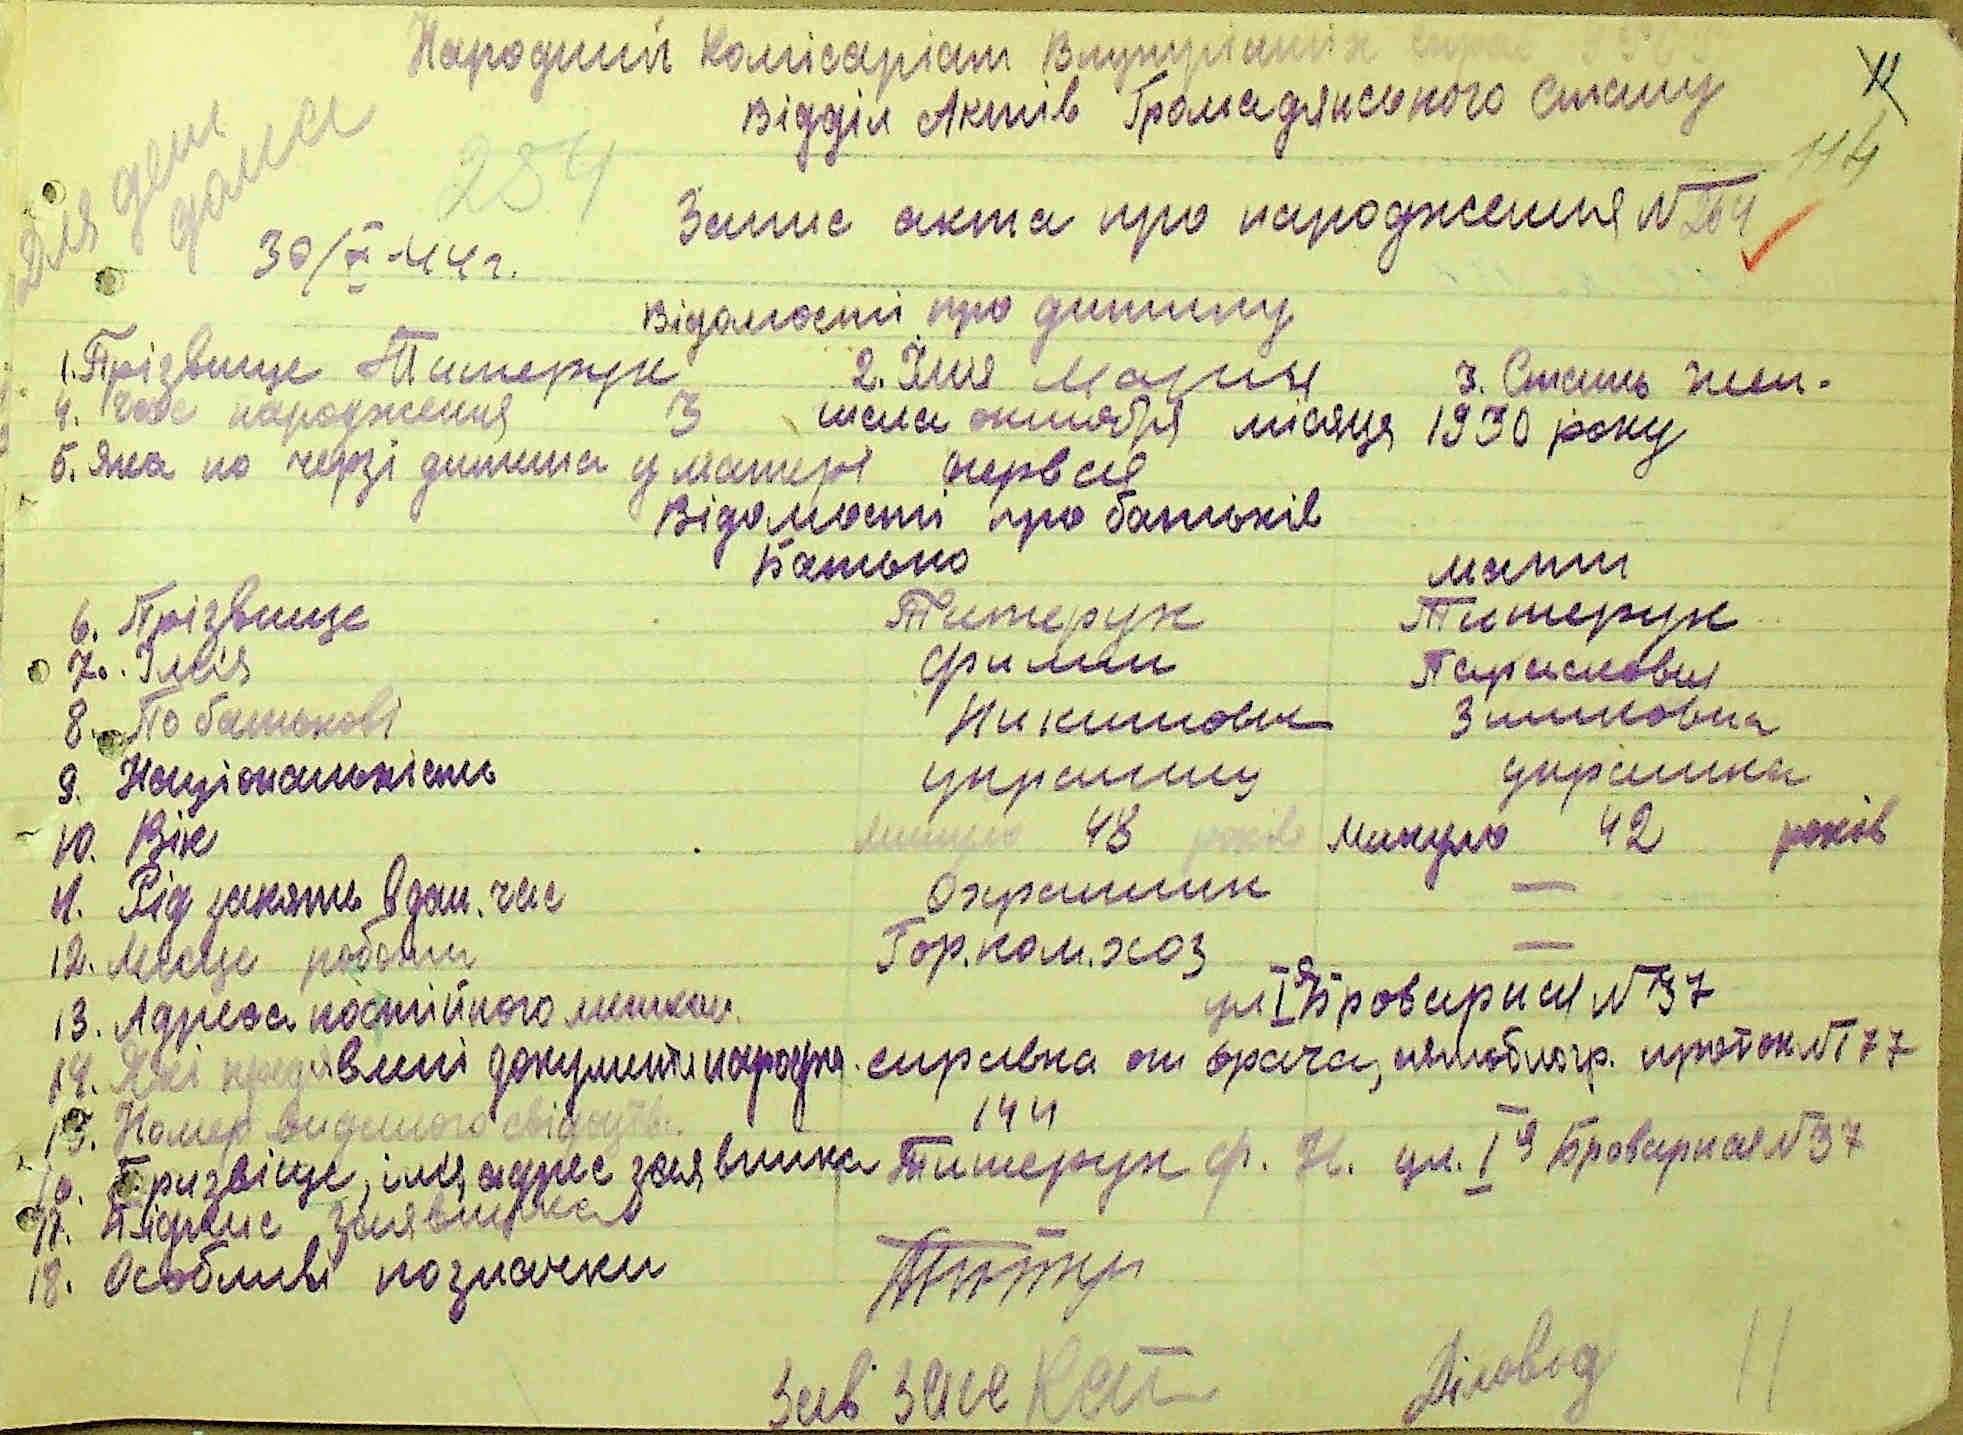 Народний Комісаріат Внутрішніх справ
Відділ Актів Громадянського Стану
11
114
Для дет
дома
254
Запис акта про народження № 264
30/X-44 г.
Відомости про дитину
1. Прізвище Титерук 2. Імя Мария 3. Стать жен.
4. Час народження 3 числа октября місяця 1930 року
5. Яка по черзі дитина у матері первая
Відомости про батьків
Батько мати
6. Прізвище Титерук Титерук
7. Імія Филип Парасковия
8. По батькові Никитович Зинковна
9. Національність украинец украинка
10. Вік Минуло 48 років Минуло 42 років
11. Рід занять в дан. час Охранник —
12. Месце роботи Гор.ком.хоз —
13. Адреса постійного мешкан. ул I я Броварная № 37
14. Які предявлені документи народж. справка от врача, проток № 77
15. Номер виданого свідоцтв. 144
16. Призвіще, імя, адрес заявника Титерук Ф. Н. ул. I я Броварная № 37
17. Підпис заявника
18. Особливі позначки
Зав ЗАГС
Діловод